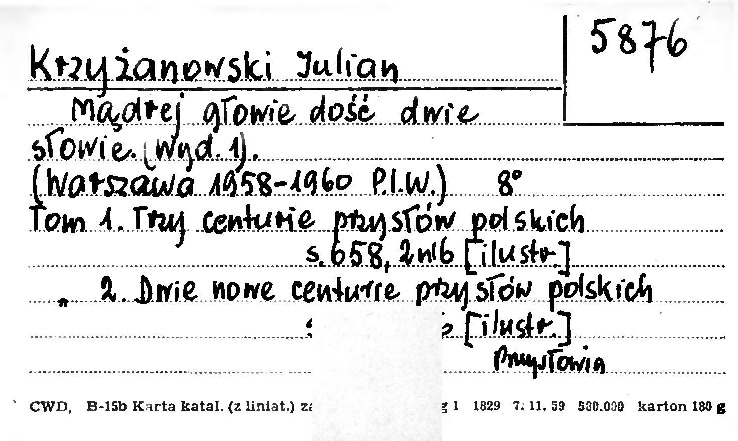 5876
Krzyżanowski Julian
Mądrej głowie dość dwie
słowie. (Wyd. 1).
(Warszawa 1958-1960 P.I.W.) 8°
Tom 1. Trzy centurie przysłów polskich
s. 658, 2 nlb [ilustr.]
„ 2. Dwie nowe centurie przysłów polskich
[ilustr.]
Przysłowia
CWD, B-15b Karta katal. (z liniat.) 1 1829 7. 11. 59 500.000 karton 180 g